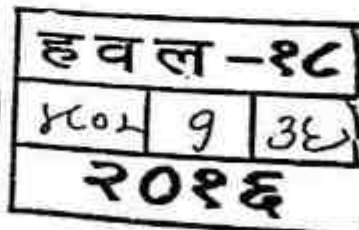 हवल -१८
४८०२ १ ३६
२०१६